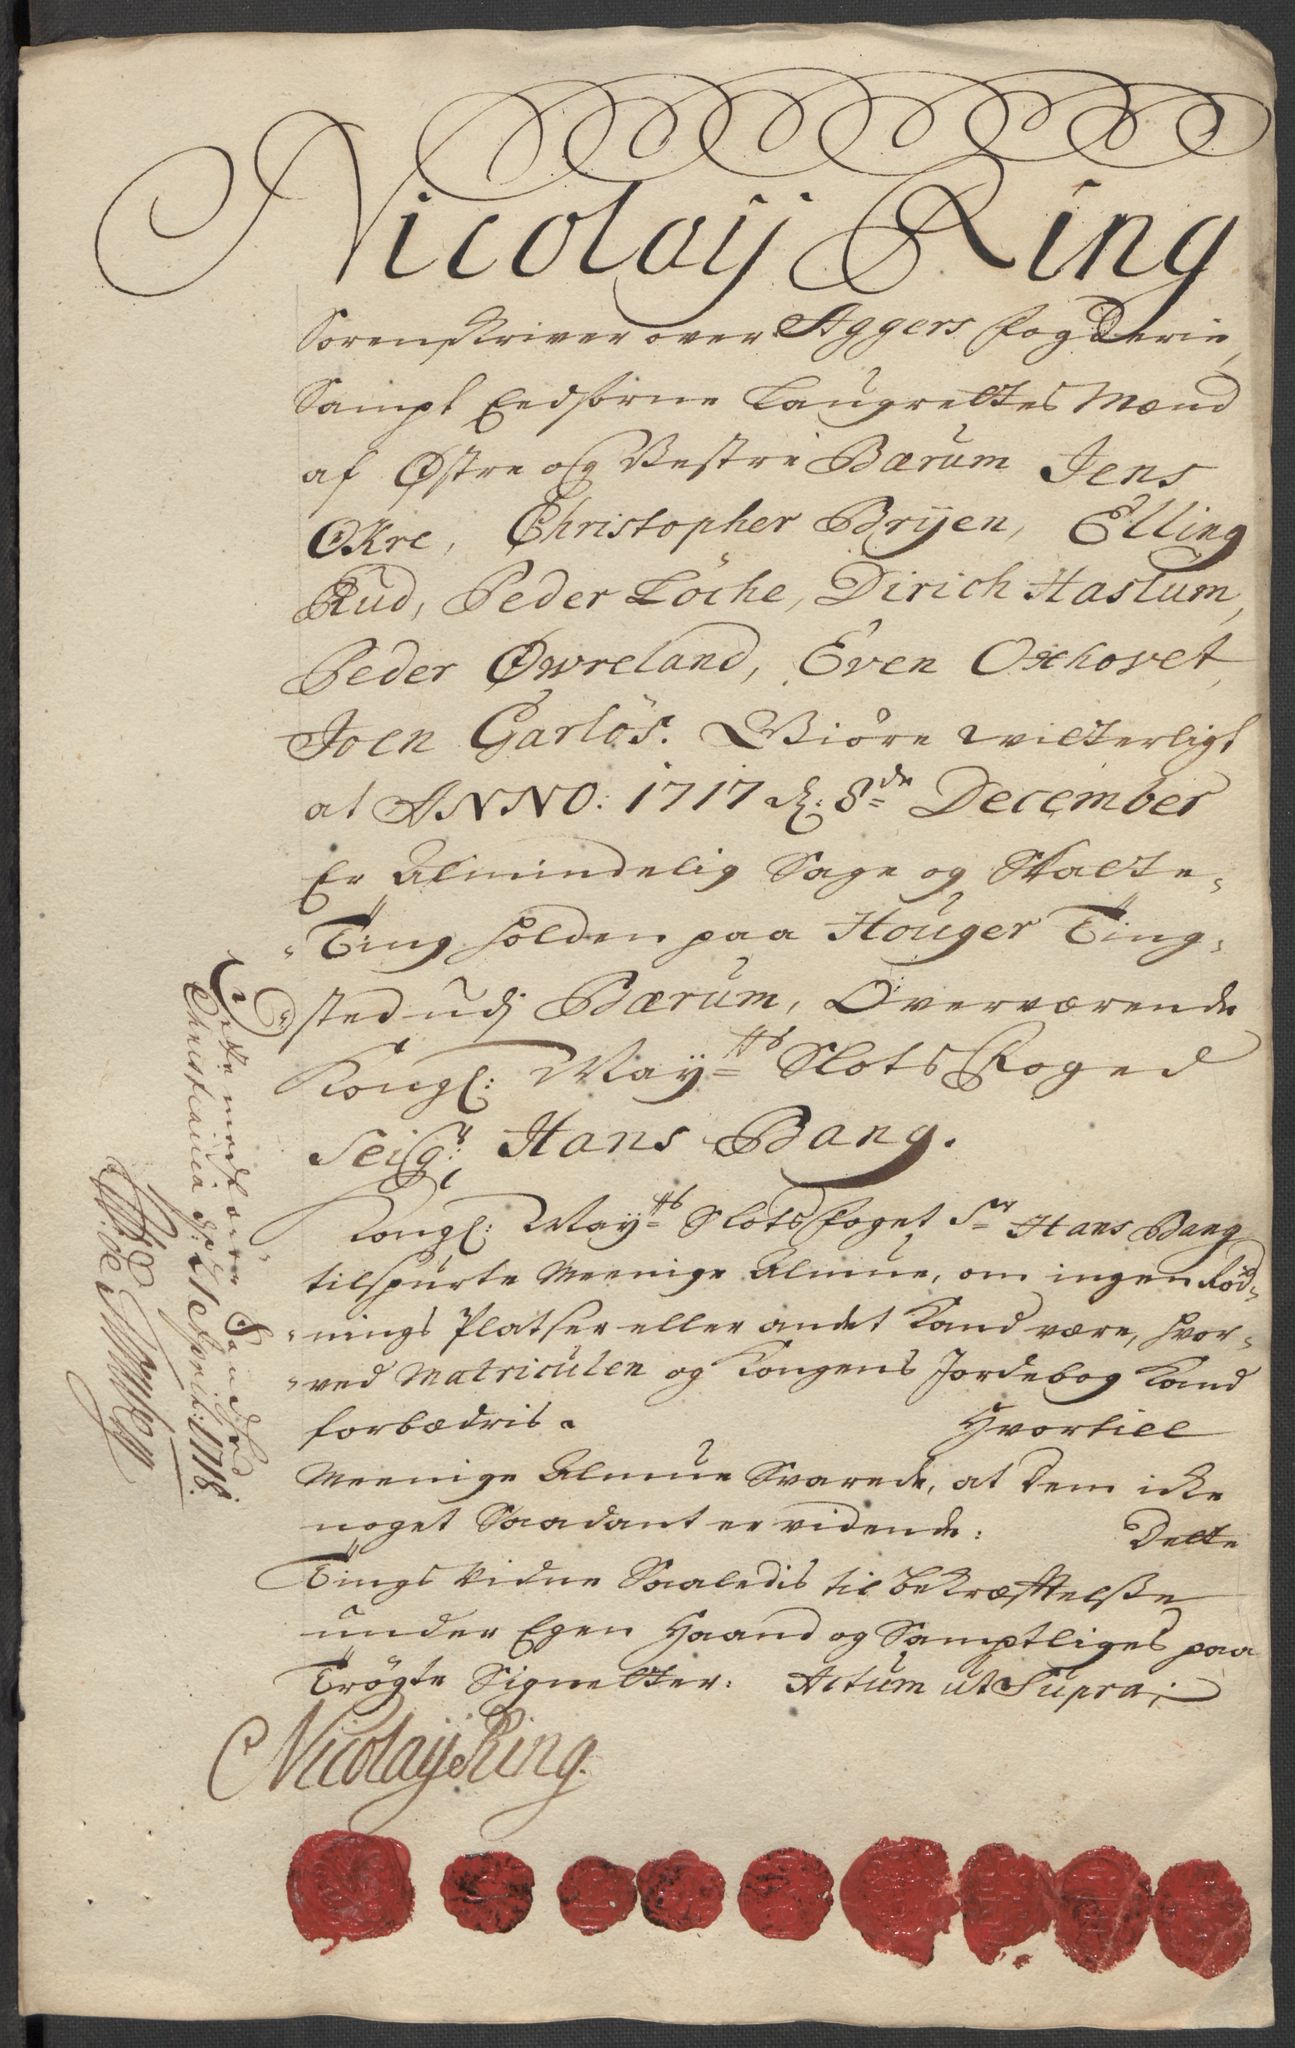 Nicolaÿ Ring
Sorenskriver over Aggers fogderie,
Sampt Eedsorne Laugrettes Mænd
af Østre og Vestre Bærum Jens
Økre, Christopher Brÿen, Elling
Rud, Peder Löche, Dirich Haslum,
Peder Øwreland, Even Oxhovet,
Joen Garlös. Giöre witterligt
at ANNO: 1717 d: 8de December
Er Almindelig Sage og Skatte-
-Ting holden paa Houger Ting-
sted udj Bærum, Overværende
Kongl: Mayts Slots Foged
Seigr: Hans Bang.
Kongl: Mayts Slotsfoget Sr Hans Bang
tilspurte Meenige Almue, om ingen Röd-
-nings Platser eller andet kand være, hvor-
-ved Matriculen og Kongens Jordebog kand
forbædris. Hvortill
Meenige Almue Svarede, at dem icke
noget Saadant er vidende: Dette
Tings vidne Saaledis til bekræftelsse
under Egen Haand og Samptliges paa
Trögte Signetter: Actum ut Supra;
Nicolaÿ Ring.
Christiania d: 21 April: 1718.